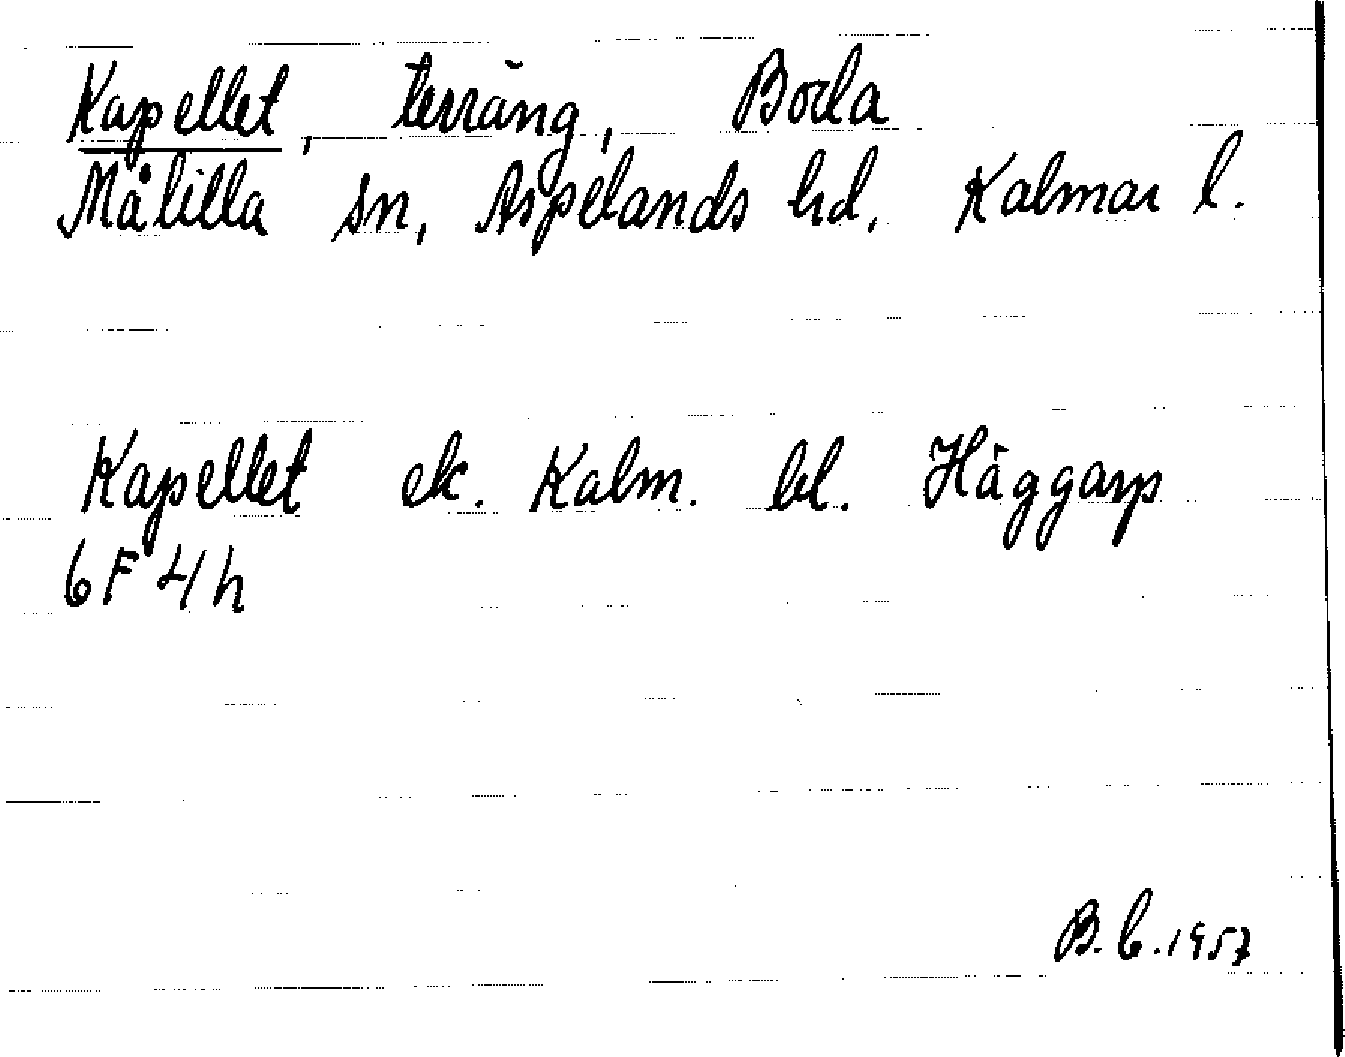 Kapellet, terräng, Boda
Målilla sn, Aspelands hd, Kalmar l.
Kapellet ek. Kalm. bl. Häggarp
6F4h
B.C.1957